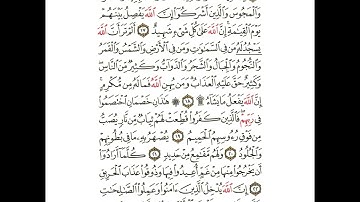 وَٱلْمَجُوسَ وَٱلَّذِينَ أَشْرَكُوٓا۟ إِنَّ ٱللَّهَ يَفْصِلُ بَيْنَهُمْ
يَوْمَ ٱلْقِيَٰمَةِ إِنَّ ٱللَّهَ عَلَىٰ كُلِّ شَىْءٍ شَهِيدٌ ١٧ أَلَمْ تَرَ أَنَّ ٱللَّهَ
يَسْجُدُ لَهُۥ مَن فِى ٱلسَّمَٰوَٰتِ وَمَن فِى ٱلْأَرْضِ وَٱلشَّمْسُ وَٱلْقَمَرُ
وَٱلنُّجُومُ وَٱلْجِبَالُ وَٱلشَّجَرُ وَٱلدَّوَآبُّ وَكَثِيرٌ مِّنَ ٱلنَّاسِ
وَكَثِيرٌ حَقَّ عَلَيْهِ ٱلْعَذَابُ وَمَن يُهِنِ ٱللَّهُ فَمَا لَهُۥ مِن مُّكْرِمٍ
إِنَّ ٱللَّهَ يَفْعَلُ مَا يَشَآءُ ۩ ١٨ هَٰذَانِ خَصْمَانِ ٱخْتَصَمُوا۟
فِى رَبِّهِمْ فَٱلَّذِينَ كَفَرُوا۟ قُطِّعَتْ لَهُمْ ثِيَابٌ مِّن نَّارٍ يُصَبُّ
مِن فَوْقِ رُءُوسِهِمُ ٱلْحَمِيمُ ١٩ يُصْهَرُ بِهِۦ مَا فِى بُطُونِهِمْ
وَٱلْجُلُودُ ٢٠ وَلَهُم مَّقَٰمِعُ مِنْ حَدِيدٍ ٢١ كُلَّمَآ أَرَادُوٓا۟
أَن يَخْرُجُوا۟ مِنْهَا مِنْ غَمٍّ أُعِيدُوا۟ فِيهَا وَذُوقُوا۟ عَذَابَ ٱلْحَرِيقِ
٢٢ إِنَّ ٱللَّهَ يُدْخِلُ ٱلَّذِينَ ءَامَنُوا۟ وَعَمِلُوا۟ ٱلصَّٰلِحَٰتِ